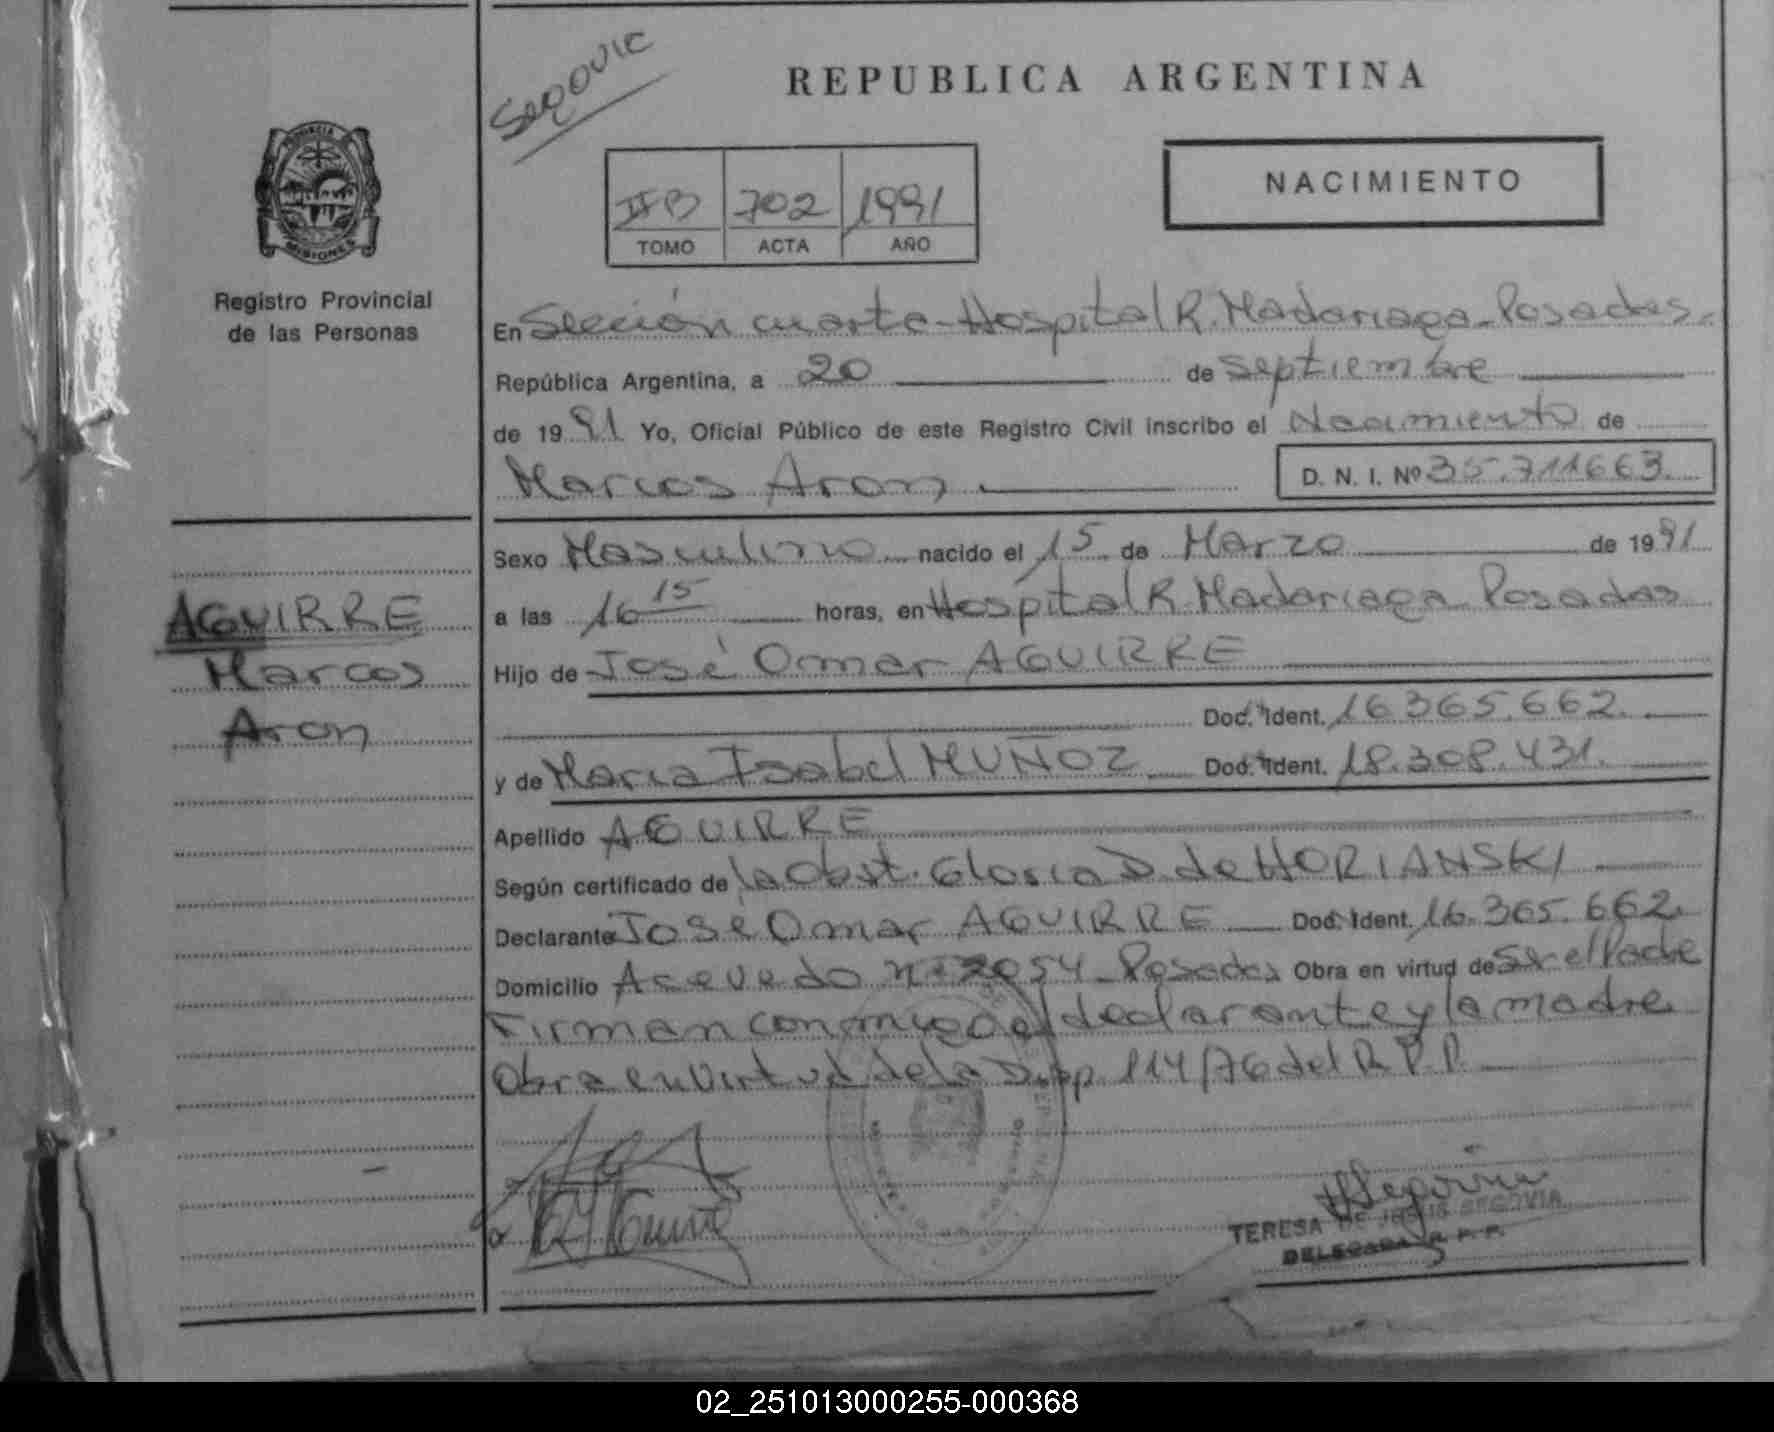 Segovic
REPUBLICA ARGENTINA
PROVINCIA
MISIONES
Registro Provincial
de las Personas
IIB 702 1991
TOMO ACTA AÑO
NACIMIENTO
En Sección cuarta-Hospital R. Madariaga-Posadas.
República Argentina, a 20 de Septiembre
de 1991 Yo, Oficial Público de este Registro Civil inscribo el Nacimiento de
Marcos Aron D. N. I. Nº 35.711663.
Sexo Masculino nacido el 15 de Marzo de 1991
a las 16 15 horas, en Hospital R. Madariaga Posadas
Hijo de José Omar AGUIRRE
Doc. Ident. 16.365.662.
y de Maria Isabel MUÑOZ Doc. Ident. 18.308.431.
Apellido AGUIRRE
Según certificado de la Obst. Gloria D. de HORIANSKI
Declarante José Omar AGUIRRE Doc. Ident. 16.365.662.
Domicilio Acevedo nº 2054 - Posadas Obra en virtud de Ser el Padre
Firman conmigo el declarante y la madre
Obra en virtud de la Disp. 114/76 del R.P.P.
AGUIRRE
Marcos
Aron
HSegovia
TERESA DE JESUS SEGOVIA
DELEGADA R. P. P.
02_251013000255-000368